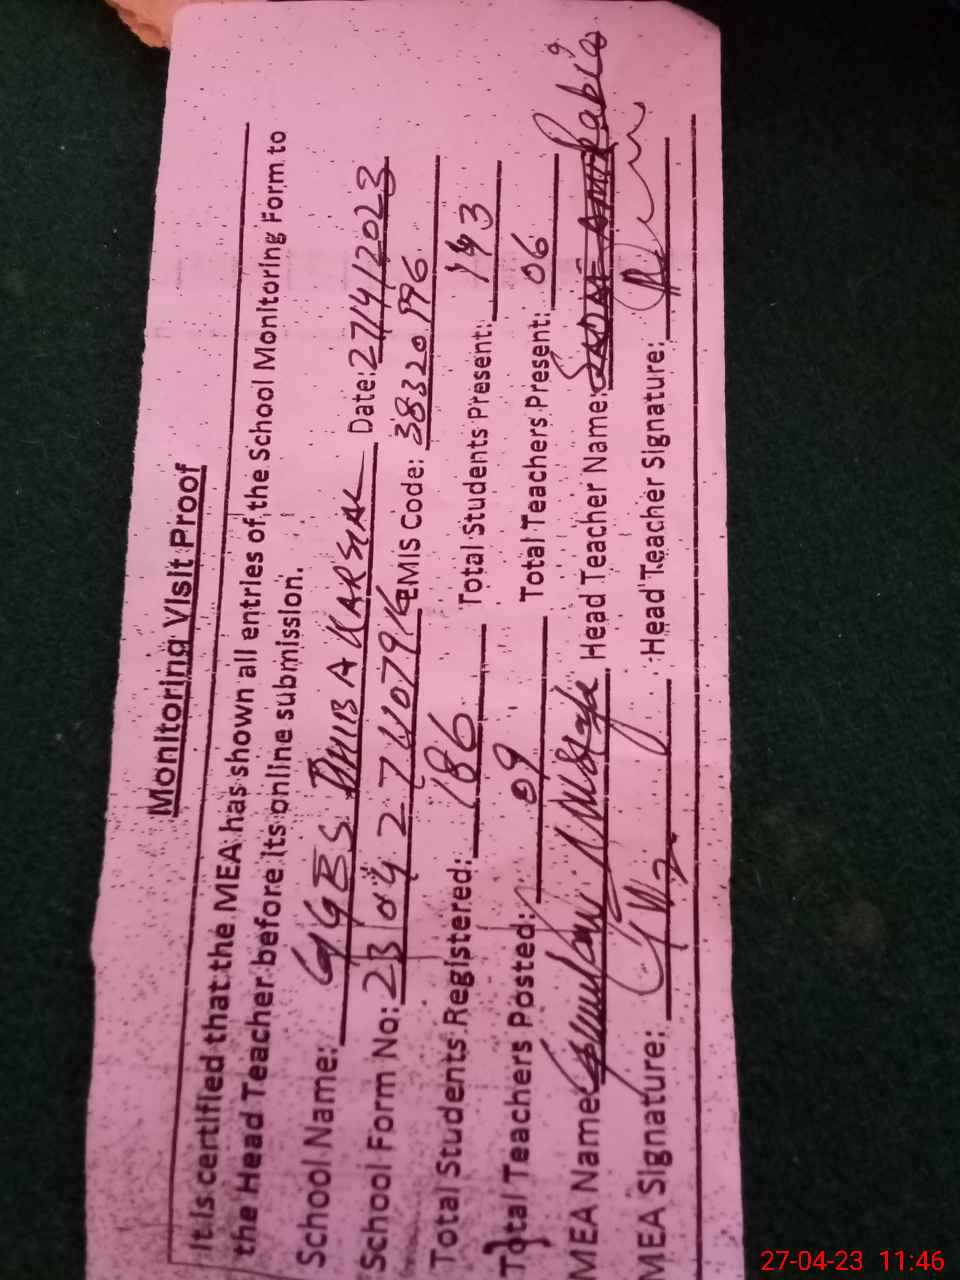 Monitoring Visit Proof
It is certified that the MEA has shown all entries of the School Monitoring Form to
the Head Teacher before its online submission.
School Name: GGES Date: 27/4/2023
School Form No: EMIS Code: 38320196
Total Students Registered: 186 Total Students Present: 143
Total Teachers Posted: 09 Total Teachers Present: 06
MEA Name: Mustafa Head Teacher Name: Rabia
MEA Signature: Head Teacher Signature:
27-04-23 11:46